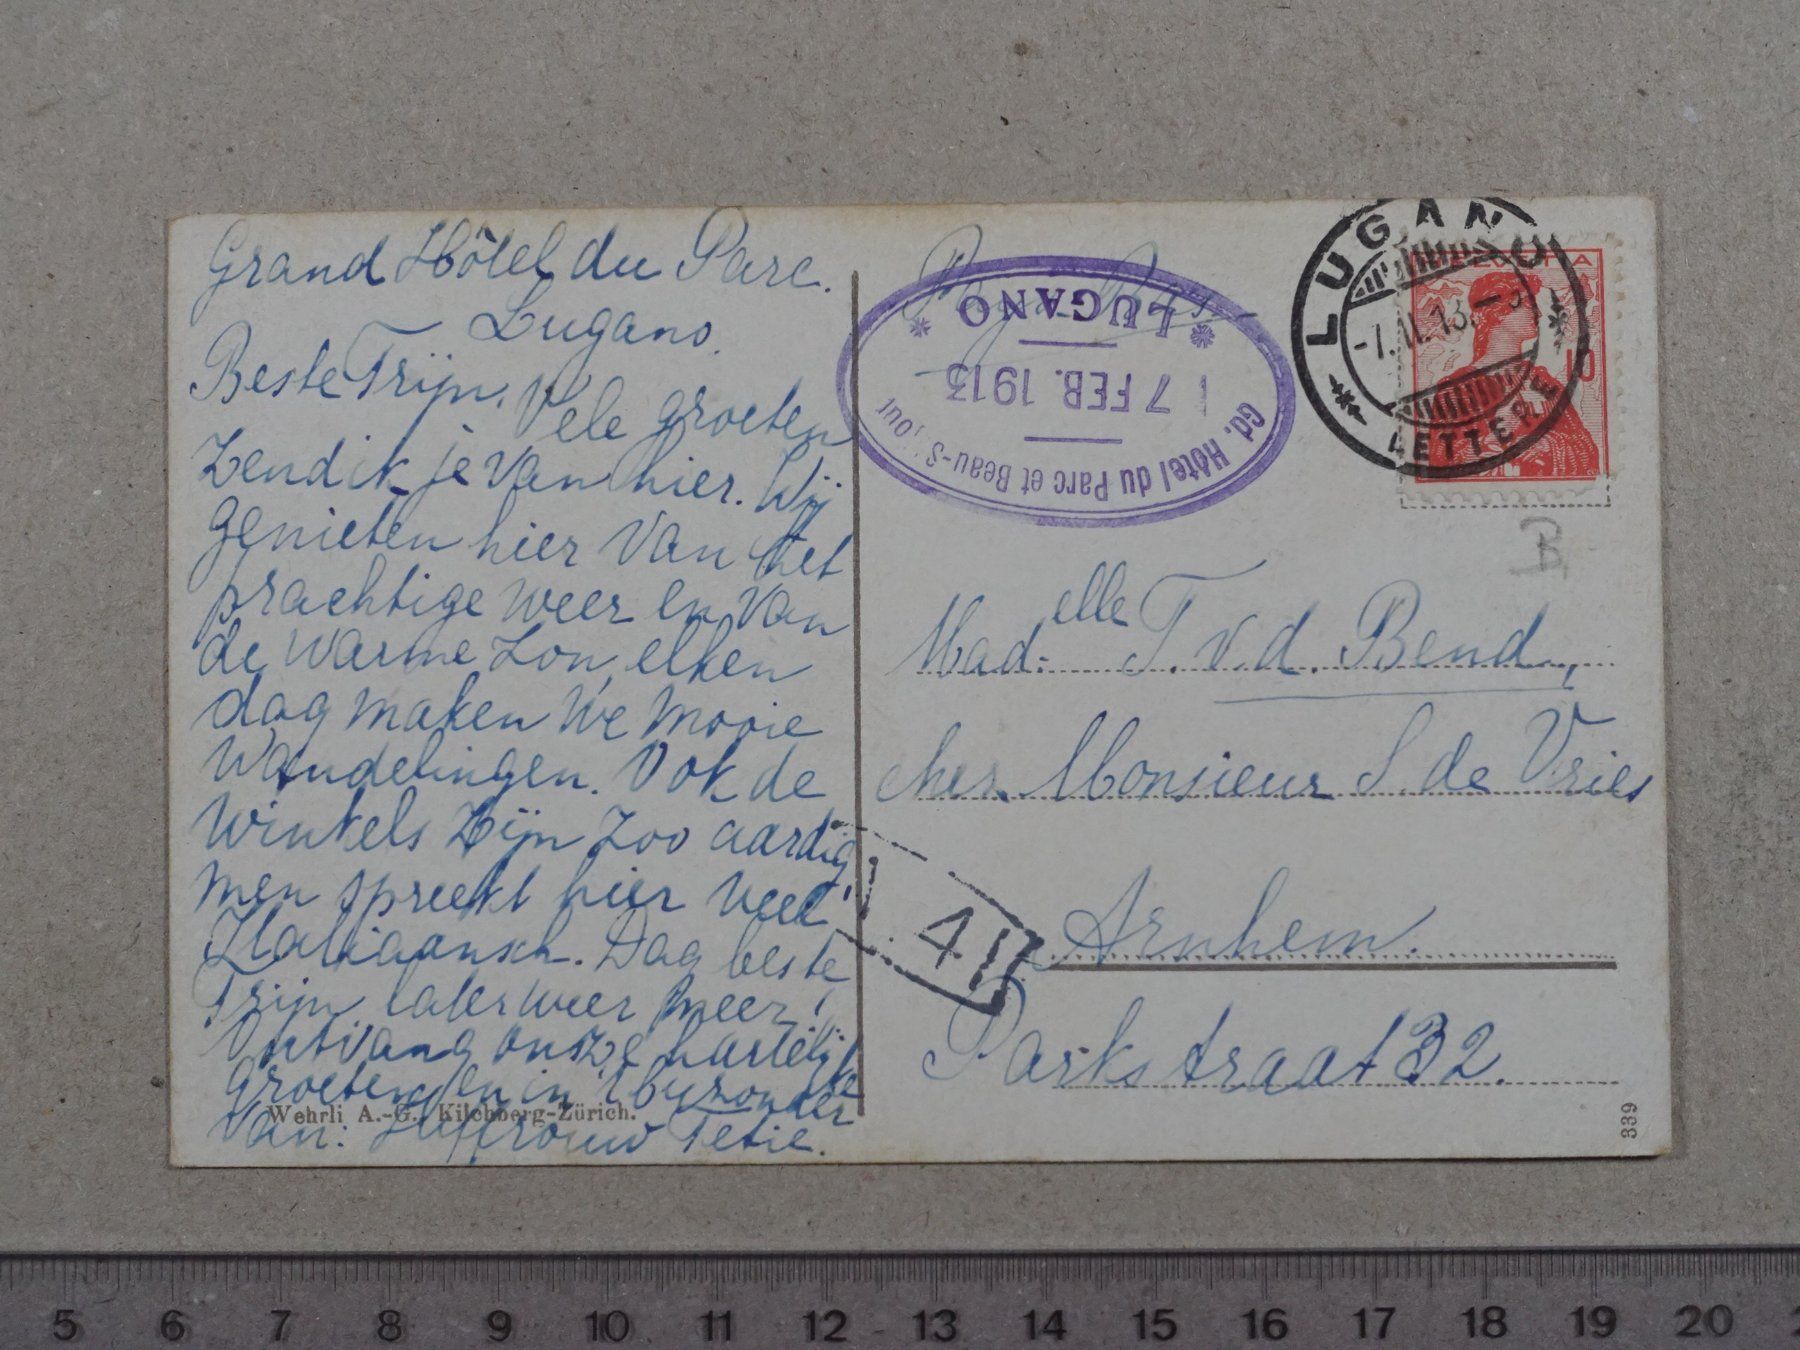 Grand Hôtel du Parc.
Lugano.
Beste Trijn, Vele groeten
zend ik je van hier. Wij
genieten hier van het
prachtige weer en van
de warme zon, elken
dag maken we mooie
wandelingen. Ook de
winkels zijn zoo aardig,
men spreekt hier veel
Italiaansch. Dag beste
Trijn later weer meer,
Ontvang onze hartelijke
groeten en in 't byzonder
van: Juffrouw Tetie.
Wehrli A.-G., Kilchberg-Zürich.
Gd. Hôtel du Parc et Beau-Séjour
7 FEB. 1913
* LUGANO *
LUGANO
-7.II.13.
LETTERE
HELVETIA
10
B
Mad.elle T. v. d. Bend,
chez Monsieur S. de Vries
Arnhem.
Parkstraat 32.
4
339
5 6 7 8 9 10 11 12 13 14 15 16 17 18 19 20